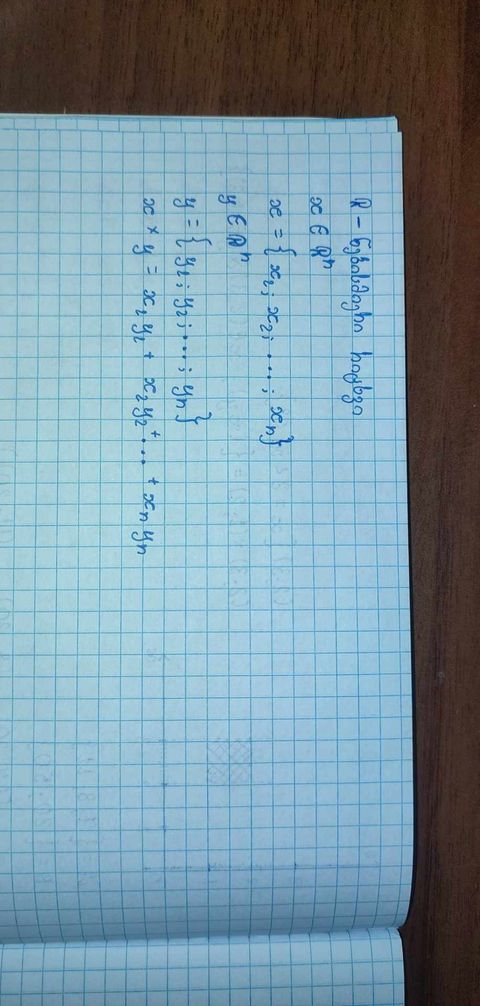 R - ნებისმიერი რიცხვი
x ∈ Rⁿ
x = {x₁; x₂; ...; xₙ}
y ∈ Rⁿ
y = {y₁; y₂; ...; yₙ}
x × y = x₁y₁ + x₂y₂ + ... + xₙyₙ